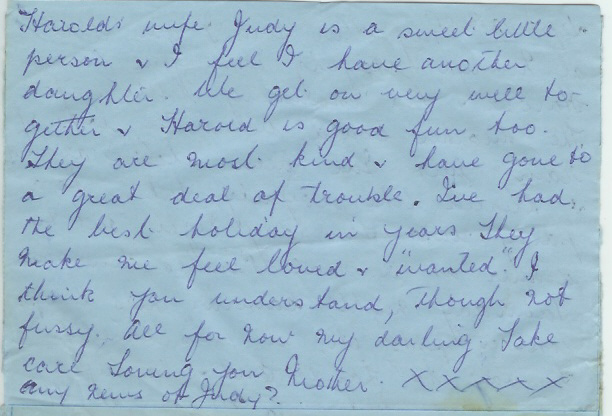 Harolds wife Judy is a sweet little
person & I feel I have another
daughter. We get on very well to-
gether & Harold is good fun too.
They are most kind & have gone to
a great deal of trouble. I've had
the best holiday in years They
make me feel loved & "wanted" I
think you understand, though not
fussy. All for now my darling Take
care Loving you Mother. X X X X X
Any news of Judy?